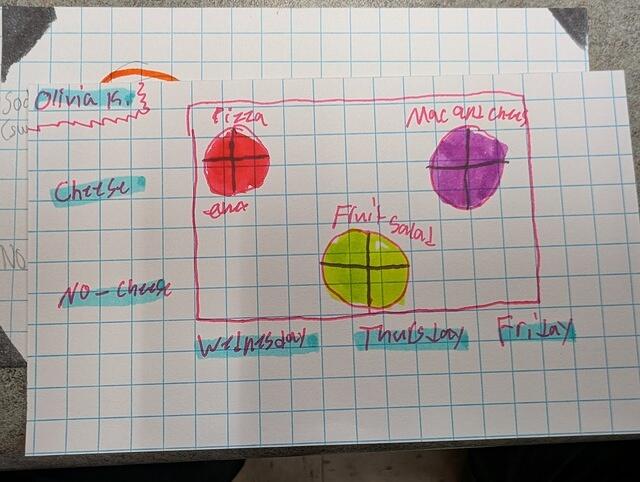 Olivia K.
Pizza
Mac and chees
Cheese
Fruit salad
No-cheese
Wednesday
Thursday
Friday
NO